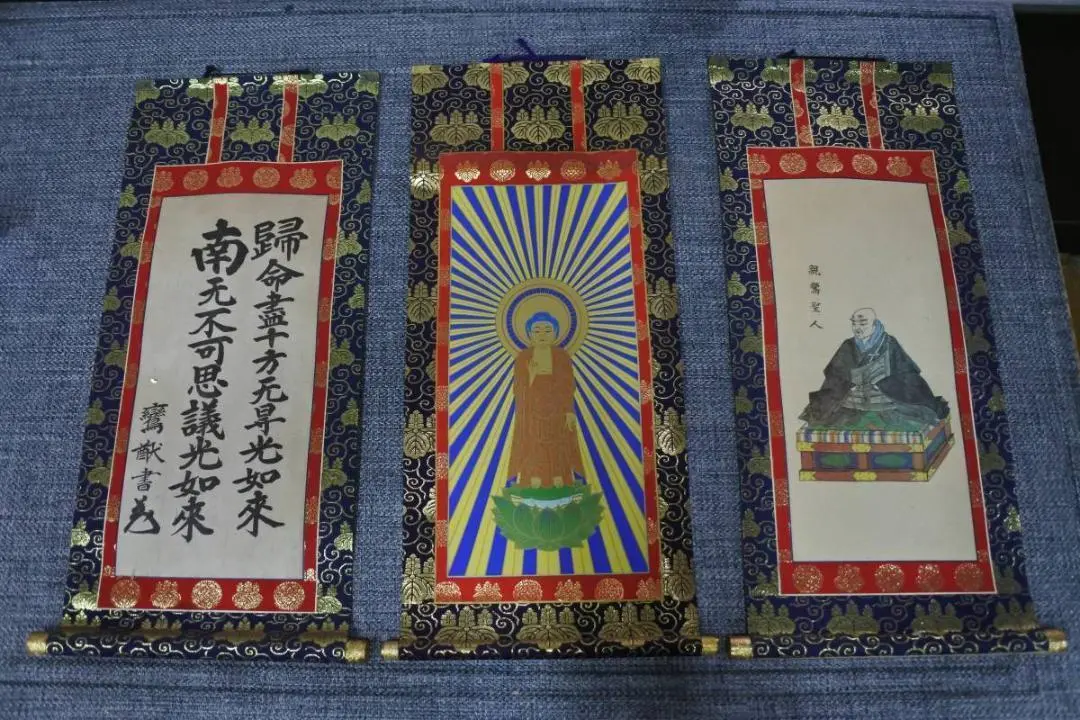 歸命盡十方无㝵光如來
南无不可思議光如來
鸞猷書
親鸞聖人